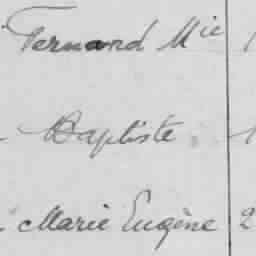 Fernand Mie
Baptiste
Marie Eugène 2